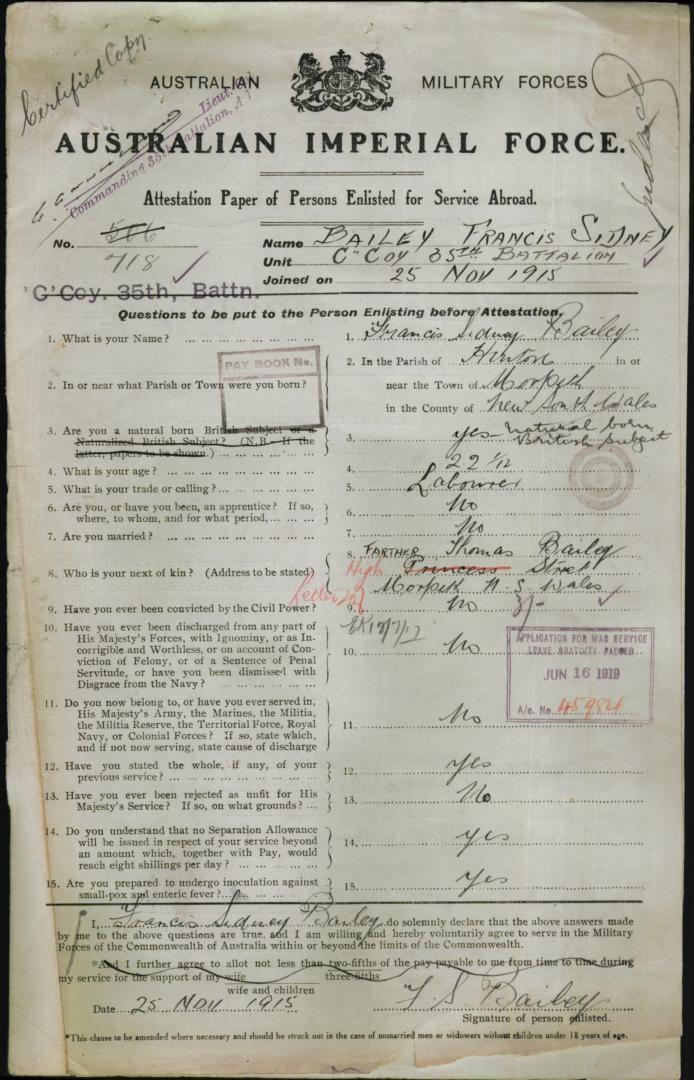 Certified Copy.
Lieut. Col.
Commanding 35th Battalion, A.I.F.
AUSTRALIAN MILITARY FORCES
AUSTRALIAN IMPERIAL FORCE.
Attestation Paper of Persons Enlisted for Service Abroad.
No. 566 Name BAILEY FRANCIS SIDNEY
718 Unit "C" COY 35TH BATTALION
Joined on 25 NOV 1915
'C' Coy. 35th, Battn.
Questions to be put to the Person Enlisting before Attestation.
1. What is your Name? 1. Francis Sidney Bailey
PAY BOOK No.
2. In or near what Parish or Town were you born? 2. In the Parish of Hinton in or
near the Town of Morpeth
in the County of New South Wales
3. Are you a natural born British Subject or a 3. yes - natural born
Naturalized British Subject? (N.B.—If the British Subject
latter, papers to be shown.)
4. What is your age? 4. 22 1/12
5. What is your trade or calling? 5. Labourer
6. Are you, or have you been, an apprentice? If so, 6. No
where, to whom, and for what period,
7. Are you married? 7. No
8. Who is your next of kin? (Address to be stated) 8. FARTHER Thomas Bailey
High Princess Street
Morpeth N. S. Wales
Letter of
9. Have you ever been convicted by the Civil Power? 9. No 3/-
17/7/17
10. Have you ever been discharged from any part of 10. No
His Majesty's Forces, with Ignominy, or as In-
corrigible and Worthless, or on account of Con-
viction of Felony, or of a Sentence of Penal
Servitude, or have you been dismissed with
Disgrace from the Navy?
APPLICATION FOR WAR SERVICE
LEAVE GRATUITY PASSED
JUN 16 1919
A/c. No. 45984
11. Do you now belong to, or have you ever served in, 11. No
His Majesty's Army, the Marines, the Militia,
the Militia Reserve, the Territorial Force, Royal
Navy, or Colonial Forces? If so, state which,
and if not now serving, state cause of discharge
12. Have you stated the whole, if any, of your 12. yes
previous service?
13. Have you ever been rejected as unfit for His 13. No
Majesty's Service? If so, on what grounds?
14. Do you understand that no Separation Allowance 14. yes
will be issued in respect of your service beyond
an amount which, together with Pay, would
reach eight shillings per day?
15. Are you prepared to undergo inoculation against 15. yes
small-pox and enteric fever?
I, Francis Sidney Bailey do solemnly declare that the above answers made
by me to the above questions are true, and I am willing and hereby voluntarily agree to serve in the Military
Forces of the Commonwealth of Australia within or beyond the limits of the Commonwealth.
*And I further agree to allot not less than two-fifths of the pay payable to me from time to time during
three-fifths
my service for the support of my wife
wife and children
Date 25 NOV 1915 F. S. Bailey
Signature of person enlisted.
*This clause to be amended where necessary and should be struck out in the case of unmarried men or widowers without children under 18 years of age.